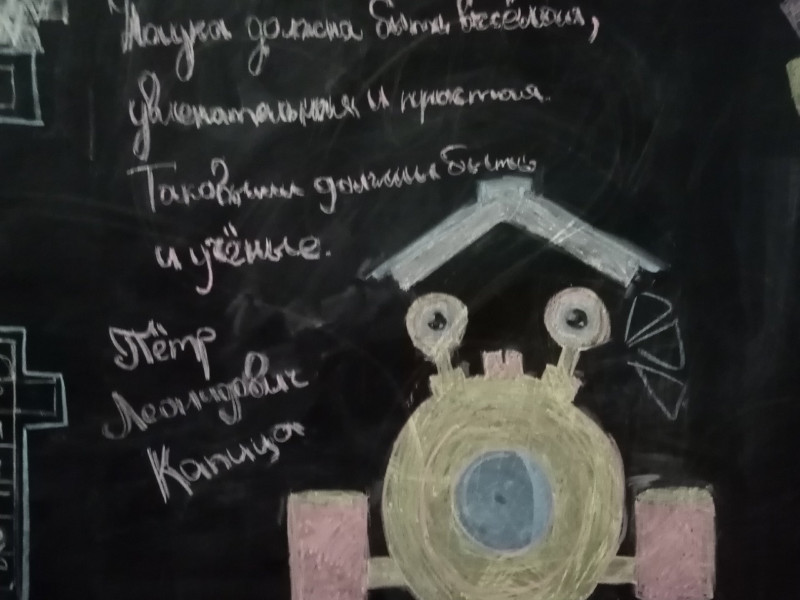 "Наука должна быть весёлая,
увлекательная и простая.
Таковыми должны быть
и учёные.
Пётр
Леонидович
Капица